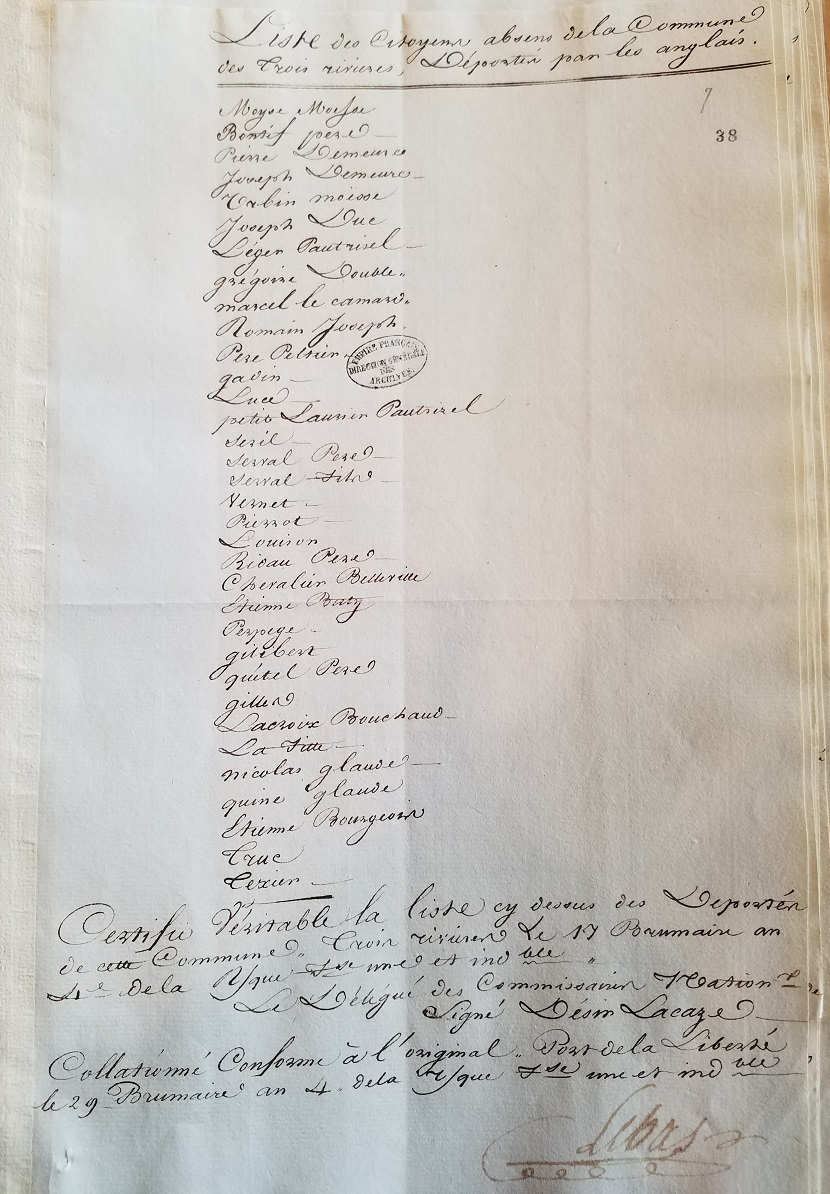 Liste des Citoyens absens de la Commune
des Trois rivieres, Déportés par les anglais.
7
38
Moyse Moesse
Bontif pere
Pierre Demeure
Joseph Demeure
Urbin moïsse
Joseph Duc
Léger Pautrisel
grégoire Double
marcel le camard
Romain Joseph.
Pere Peltrier
EMPIRE FRANÇAIS
DIRECTION GÉNÉRALE
DES
ARCHIVES
gavin
Luce
petit Laurier Pautrizel
seril
serval Pere
serval fils
Vernet
Pierrot
Louison
Ricau Pere
Chevalier Belleville
Etienne Buty
Perpege
gilbert
quitel Pere
gilles
Lacroix Bouchaud
La Fitte
nicolas glaude
quine glaude
Etienne Bourgeois
Truc
Texier
Certifié Véritable la liste cy dessus des Deportés
de cette Commune, Trois rivieres le 17 Brumaire an
4e de la R/que fse une et indble
Le Délégué des Commissaires Nation
Signé Désir Lacaze
Collationné Conforme à l'original. Port de la Liberté
le 29 Brumaire an 4. de la R/que fse une et indble
Lebas